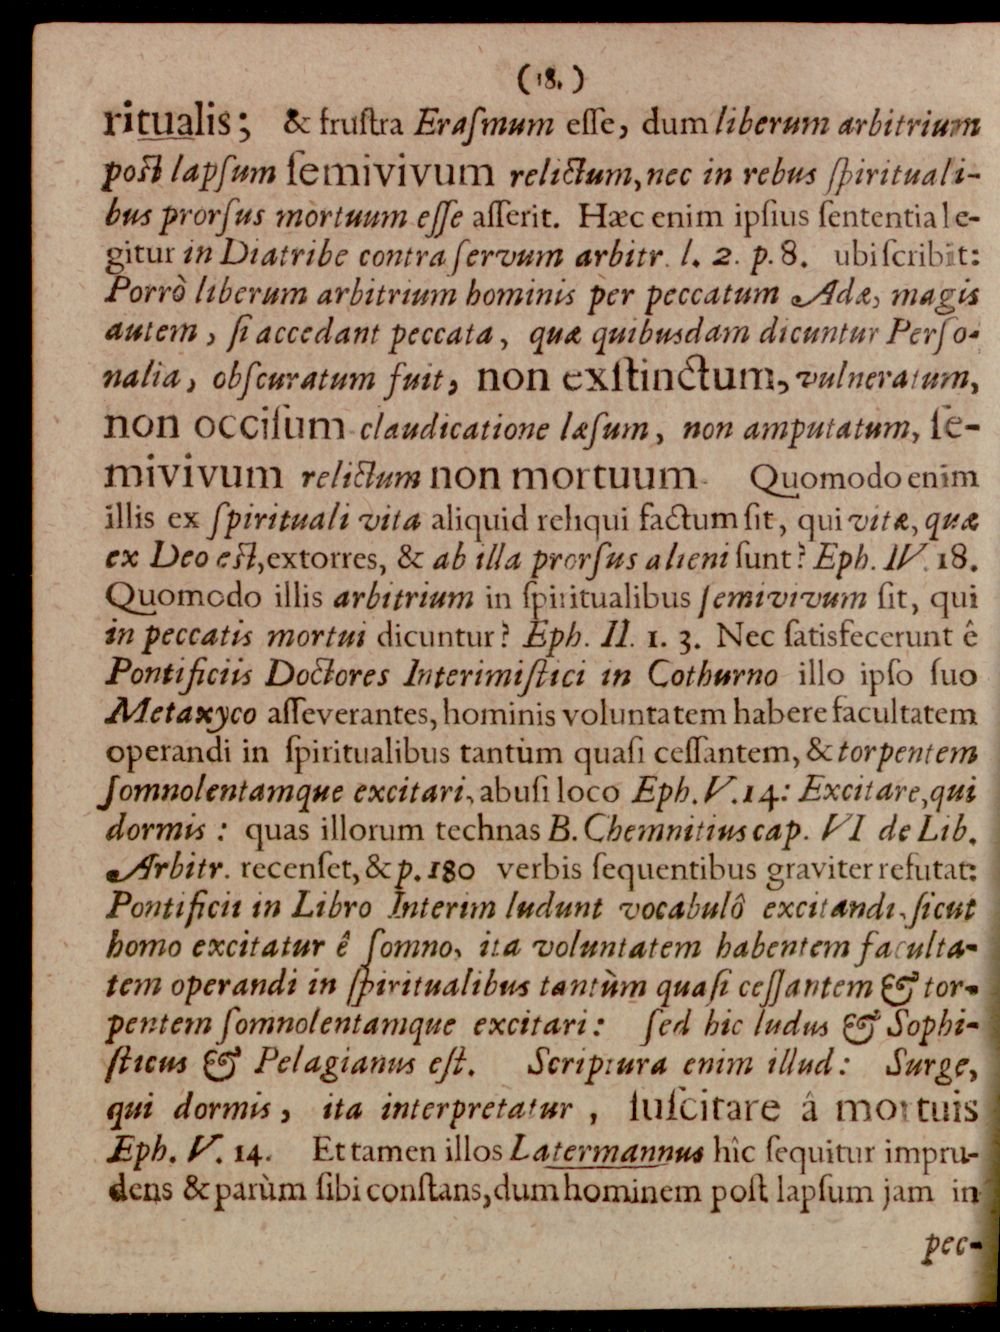 (18.)
ritualis; & fruſtra Eraſmum eſſe, dum liberum arbitrium
poſt lapſum ſemivivum relictum, nec in rebus ſpirituali-
bus prorſus mortuum eſſe aſſerit. Hæc enim ipſius ſententia le-
gitur in Diatribe contra ſervum arbitr. l. 2. p. 8. ubi ſcribit:
Porrò liberum arbitrium hominis per peccatum Adæ, magis
autem, ſi accedant peccata, quæ quibusdam dicuntur Perſo-
nalia, obſcuratum fuit, non exſtinctum, vulneratum,
non occiſum claudicatione læſum, non amputatum, ſe-
mivivum relictum non mortuum. Quomodo enim
illis ex ſpirituali vita aliquid reliqui factum ſit, qui vitæ, quæ
ex Deo eſt, extorres, & ab illa prorſus alieni ſunt? Eph. IV. 18.
Quomodo illis arbitrium in ſpiritualibus ſemivivum ſit, qui
in peccatis mortui dicuntur? Eph. II. 1. 3. Nec ſatisfecerunt ê
Pontificiis Doctores Interimiſtici in Cothurno illo ipſo ſuo
Metaxyco aſſeverantes, hominis voluntatem habere facultatem
operandi in ſpiritualibus tantùm quaſi ceſſantem, & torpentem
ſomnolentamque excitari, abuſi loco Eph. V. 14: Excitare, qui
dormis: quas illorum technas B. Chemnitius cap. VI de Lib.
Arbitr. recenſet, & p. 180 verbis ſequentibus graviter refutat:
Pontificii in Libro Interim ludunt vocabulô excitandi, ſicut
homo excitatur ê ſomno, ita voluntatem habentem faculta-
tem operandi in ſpiritualibus tantùm quaſi ceſſantem & tor-
pentem ſomnolentamque excitari: ſed hic ludus & Sophi-
ſticus & Pelagianus eſt. Scriptura enim illud: Surge,
qui dormis, ita interpretatur, ſuſcitare â mortuis
Eph. V. 14. Et tamen illos Latermannus hîc ſequitur impru-
dens & parùm ſibi conſtans, dum hominem poſt lapſum jam in
pec-